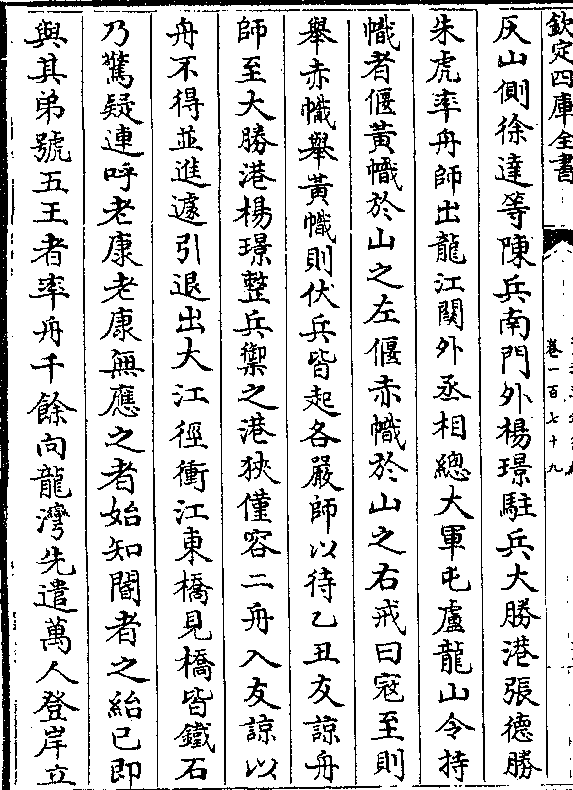 欽定四庫全書
卷一百七十九
灰山側徐達等陳兵南門外楊璟駐兵大勝港張德勝
朱虎率舟師出龍江關外丞相總大軍屯盧龍山令持
幟者偃黃幟於山之左偃赤幟於山之右戒曰寇至則
舉赤幟舉黃幟則伏兵皆起各嚴師以待乙丑友諒舟
師至大勝港楊璟整兵禦之港狹僅容二舟入友諒以
舟不得並進遽引退出大江徑衝江東橋見橋皆鐵石
乃驚疑連呼老康老康無應之者始知閽者之紿已即
與其弟號五王者率舟千餘向龍灣先遣萬人登岸立